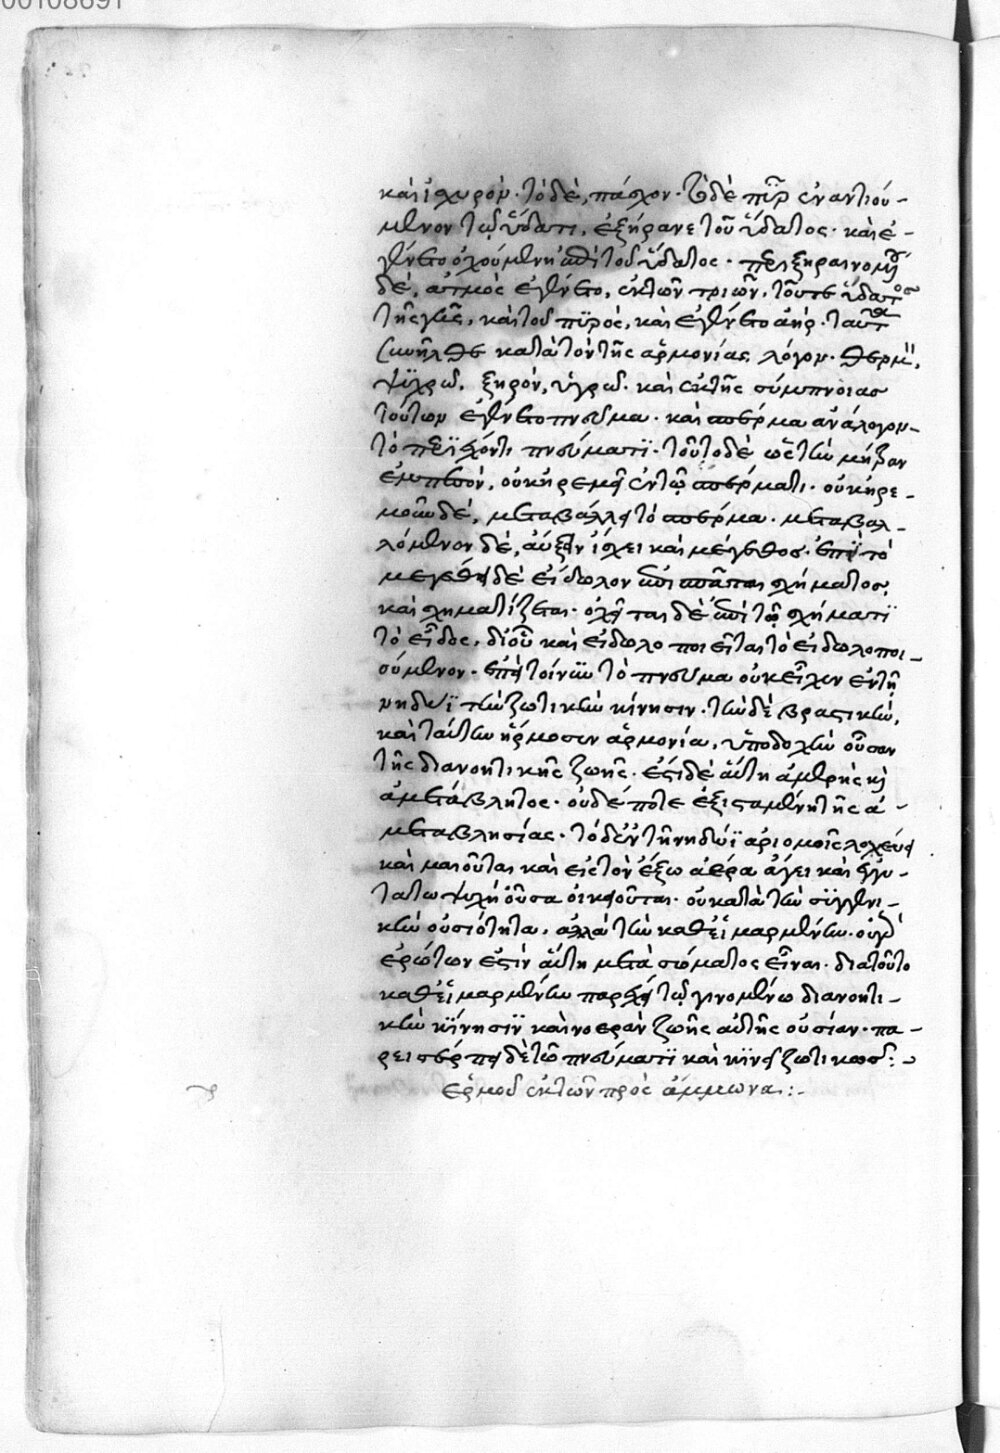 00108691
καὶ ἰσχυρόν· τὸ δὲ, πάσχον· τὸ δὲ πῦρ ἐναντιού-
μενον τῷ ὕδατι, ἐξήρανε τοῦ ὕδατος· καὶ ἐ-
γένετο ὀχουμένη ἐπὶ τοῦ ὕδατος· περιξηραινομένου
δὲ, ἀτμὸς ἐγένετο, ἐκ τῶν τριῶν, τοῦ τε ὕδατος
τῆς γῆς, καὶ τοῦ πυρὸς, καὶ ἐγένετο ἀήρ· ταῦτα
συνῆλθε κατὰ τὸν τῆς ἁρμονίας λόγον· θερμῷ,
ψυχρῷ, ξηρόν, ὑγρῷ· καὶ ἐκ τῆς σύμπνοιας
τούτων ἐγένετο πνεῦμα· καὶ σπέρμα ἀνάλογον
τὸ περιέχοντι πνεύματι· τοῦτο δὲ ὡς τὴν μήτραν
ἐμπεσὸν, οὐκ ἠρεμεῖ ἐν τῷ σπέρματι· οὐκ ἠρε-
μοῦν δὲ, μεταβάλλει τὸ σπέρμα· μεταβαλ-
λόμενον δὲ, αὔξην ἴσχει καὶ μέγεθος· ἐπὶ τὸ
μεγέθει δὲ εἴδωλον ἐπισπᾶται σχήματος,
καὶ σχηματίζεται· ὀχεῖται δὲ ἐπὶ τῷ σχήματι
τὸ εἶδος, δι' οὗ καὶ εἰδωλοποιεῖται τὸ εἰδωλοποι-
ούμενον· ἐπεὶ τοίνυν τὸ πνεῦμα οὐκ εἶχεν ἐν τῇ
νηδύϊ τὴν ζωτικὴν κίνησιν· τὴν δὲ βραστικὴν,
καὶ ταύτην ἥρμοσεν ἁρμονία, ὑποδοχὴν οὖσαν
τῆς διανοητικῆς ζωῆς· ἔστι δὲ αὕτη ἀμερὴς καὶ
ἀμετάβλητος· οὐδέποτε ἐξισταμένη τῆς ἀ-
μεταβλησίας· τὸ δ' ἐν τῇ νηδύϊ ἀριομοῖς λοχεύει
καὶ μαιοῦται καὶ εἰς τὸν ἔξω ἀέρα ἄγει καὶ ἐγγυ-
τάτω ψυχὴ οὖσα οἰκειοῦται· οὐ κατὰ τὴν συγγενι-
κὴν οὐσιότητα, ἀλλὰ τὴν καθ' εἱμαρμένην· οὐ γὰρ
ἐρώτων ἐστὶν αὕτη μετὰ σώματος εἶναι· διὰ τοῦτο
καθ' εἱμαρμένην παρέχει τῷ γινομένω διανοητι-
κὴν κίνησιν καὶ νοερὰν ζωῆς αὐτῆς οὐσίαν· πα-
ρεισέρπει δὲ τῷ πνεύματι καὶ κινεῖ ζωτικῶς:
ἑρμοῦ ἐκ τῶν πρὸς ἄμμωνα: